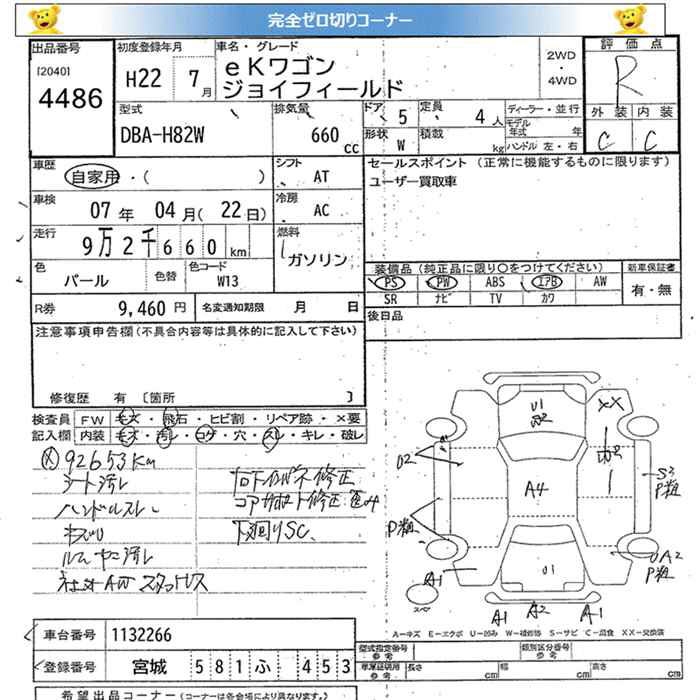 完全ゼロ切りコーナー
出品番号
[2040]
4486
初度登録年月
H22 7月
車名・グレード
eKワゴン
ジョイフィールド
2WD
・
4WD
評価点
R
外装 内装
C C
型式
DBA-H82W
排気量
660 cc
ドア 5
定員 4人
形状 W
積載 kg
ディーラー・並行
モデル年式 年
ハンドル 左・右
車歴
自家用・( )
シフト
AT
セールスポイント (正常に機能するものに限ります)
ユーザー買取車
車検
07年 04月( 22日)
冷房
AC
走行
9万2千660km
燃料
ガソリン
色
パール
色替
色コード
W13
装備品 (純正品に限り○をつけてください)
PS PW ABS エアB AW
SR ナビ TV カワ
新車保証書
有・無
R券 9,460円
名変通知期限 月 日
後日品
注意事項申告欄(不具合内容等は具体的に記入して下さい)
修復歴 有 〔箇所 〕
検査員
記入欄
FW キズ・飛石・ヒビ割・リペア跡・×要
内装 キズ・汚レ・コゲ・穴・スレ・キレ・破レ
92653Km
シート汚レ
ハンドルスレ
コアサポート修正
下廻りSC
U1
XX
A4
U2
S3
P粗
P粗
UA2
P粗
A1
U1
スペア
A1 A2 A1
A−キズ E−エクボ U−凹み W−補修跡 S−サビ C−腐食 XX−交換済
車台番号 1132266
登録番号 宮城 581 ふ 453
型式指定番号
参考
類別区分番号
参考
車庫証明用
参考
長さ cm
幅 cm
高さ cm
希望出品コーナー(コーナーは各会場により異なります。)